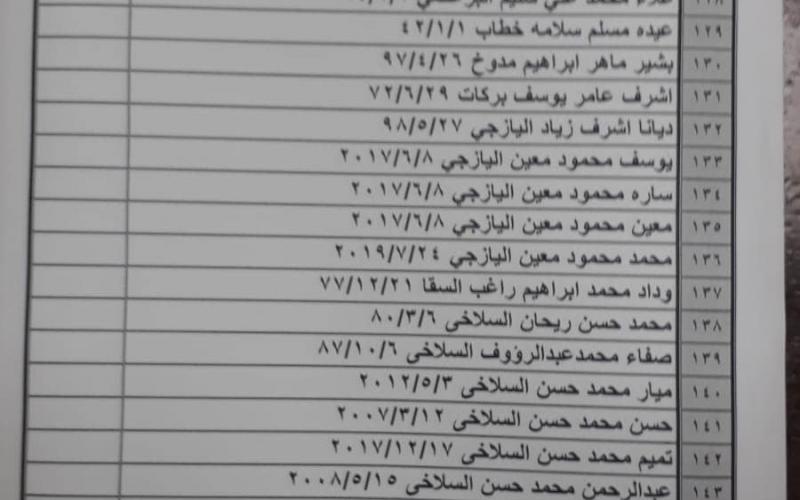 ١٢٨ علاء محمد علي
١٢٩ عيده مسلم سلامه خطاب ٤٢/١/١
١٣٠ بشير ماهر ابراهيم مدوخ ٩٧/٤/٢٦
١٣١ اشرف عامر يوسف بركات ٧٢/٦/٢٩
١٣٢ ديانا اشرف زياد اليازجي ٩٨/٥/٢٧
١٣٣ يوسف محمود معين اليازجي ٢٠١٧/٦/٨
١٣٤ ساره محمود معين اليازجي ٢٠١٧/٦/٨
١٣٥ معين محمود معين اليازجي ٢٠١٧/٦/٨
١٣٦ محمد محمود معين اليازجي ٢٠١٩/٧/٢٤
١٣٧ وداد محمد ابراهيم راغب السقا ٧٧/١٢/٢١
١٣٨ محمد حسن ريحان السلاخى ٨٠/٣/٦
١٣٩ صفاء محمدعبدالرؤوف السلاخى ٨٧/١٠/٦
١٤٠ ميار محمد حسن السلاخى ٢٠١٢/٥/٣
١٤١ حسن محمد حسن السلاخى ٢٠٠٧/٣/١٢
١٤٢ تميم محمد حسن السلاخى ٢٠١٧/١٢/١٧
١٤٣ عبدالرحمن محمد حسن السلاخى ٢٠٠٨/٥/١٥